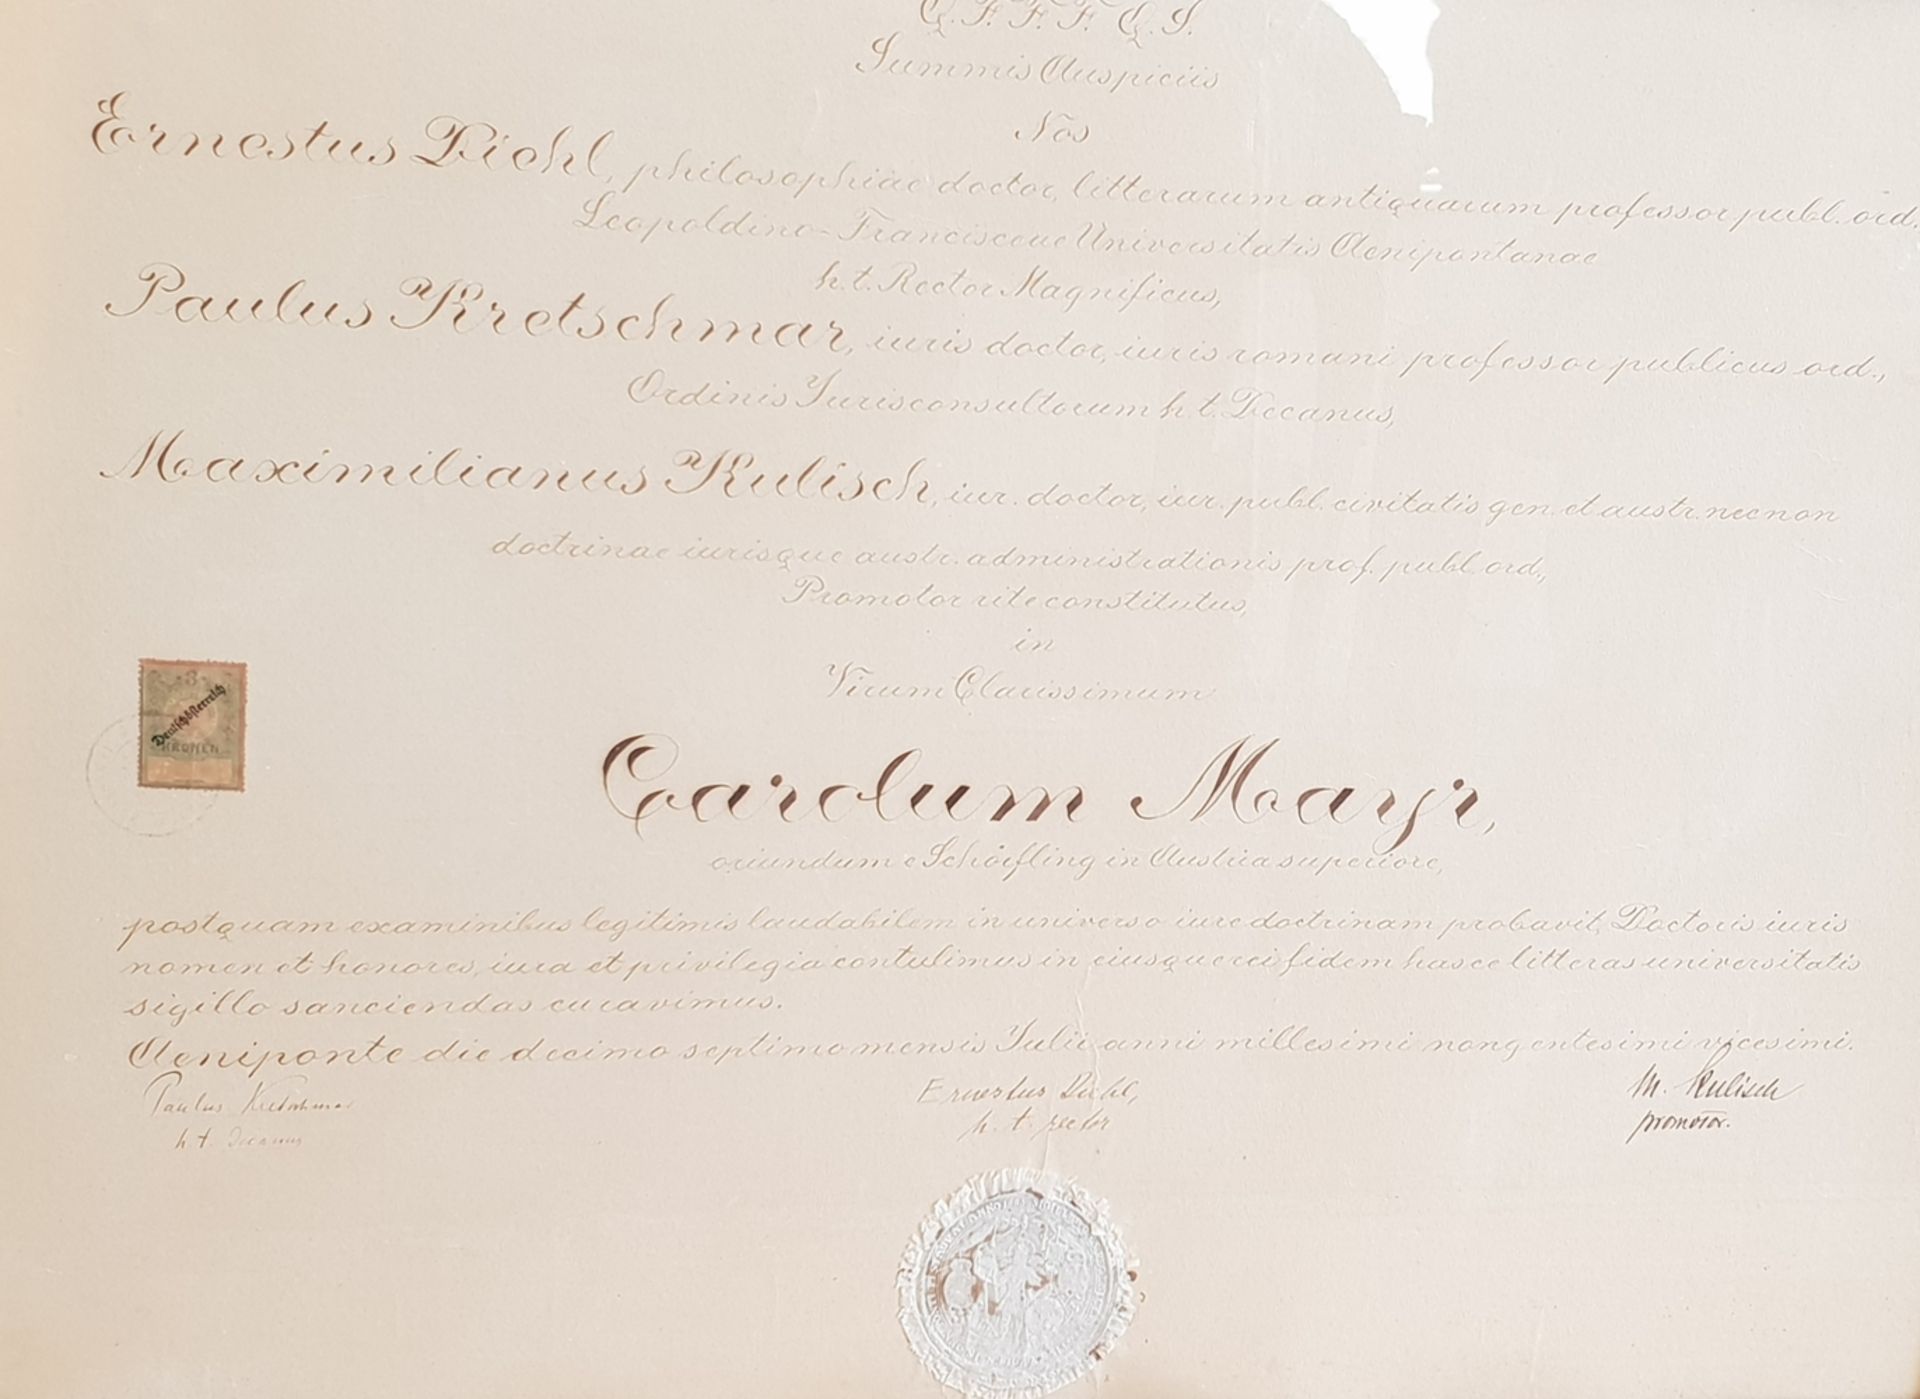 Q. F. F. F. Q. S.
Summis Auspiciis
Nos
Ernestus Diehl, philosophiae doctor, litterarum antiquarum professor publ. ord.
Leopoldino-Francisceae Universitatis Aenipontanae
h. t. Rector Magnificus,
Paulus Kretschmar, iuris doctor, iuris romani professor publicus ord.,
Ordinis Jurisconsultorum h. t. Decanus,
Maximilianus Kulisch, iur. doctor, iur. publ. civitatis gen. et austr. necnon
doctrinae iurisque austr. administrationis prof. publ. ord.,
Promotor rite constitutus,
in
Virum Clarissimum
3
Deutschösterreich
KRONEN
Carolum Mayr,
oriundum e Schörfling in Austria superiore,
postquam examinibus legitimis laudabilem in universo iure doctrinam probavit, Doctoris iuris
nomen et honores, iura et privilegia contulimus in eiusque rei fidem hasce litteras universitatis
sigillo sanciendas curavimus.
Aeniponte die decimo septimo mensis Julii anni millesimi nongentesimi vicesimi.
Paulus Kretschmar Ernestus Diehl, M. Kulisch
h. t. Decanus h. t. rector promotor.